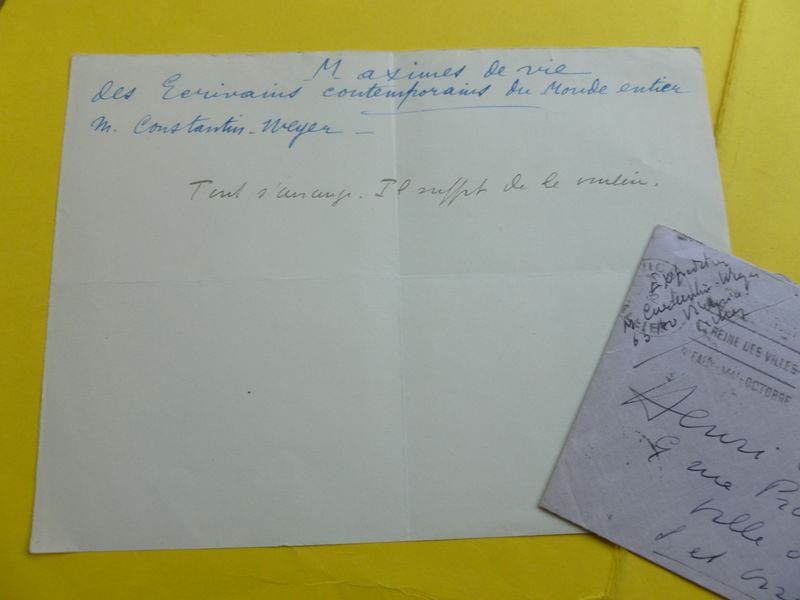 Maximes de vie
des Ecrivains contemporains du Monde entier
M. Constantin-Weyer -
Tout s'arrange. Il suffit de le vouloir.
Expéditeur
M. Constantin-Weyer
63
Vichy
REINE DES VILLES
MAI-OCTOBRE
Henri
9 rue
Ville
S et